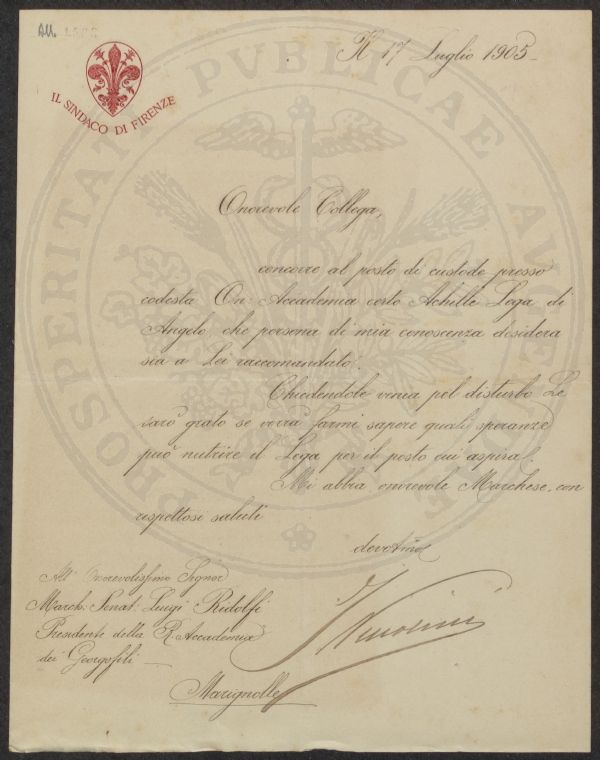 All.
IL SINDACO DI FIRENZE
Il 17 Luglio 1905
PROSPERITATI PVBLICAE AVGENDAE
Onorevole Collega,
concorre al posto di custode presso
codesta On: Accademia certo Achille Lega di
Angelo che persona di mia conoscenza desidera
sia a Lei raccomandato.
Chiedendole venia pel disturbo Le
sarò grato se vorrà farmi sapere quali speranze
può nutrire il Lega per il posto cui aspira.
Mi abbia onorevole Marchese, con
rispettosi saluti
devotmo
All' Onorevolissimo Signor
March: Senat: Luigi Ridolfi
Presidente della R. Accademia
dei Georgofili
Marignolle